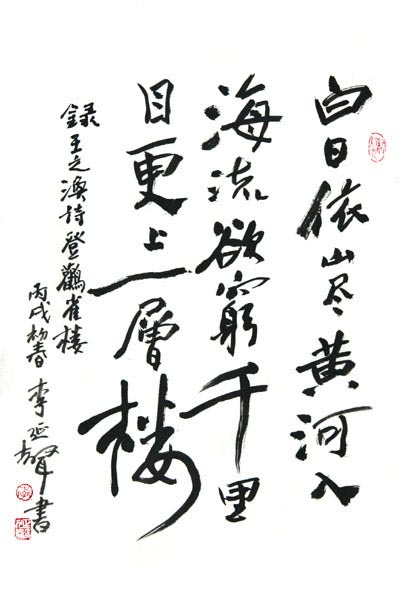 白日依山尽黄河入
海流欲窮千里
目更上一層楼
録王之渙詩登鸛雀楼
丙戌初春李延聲書